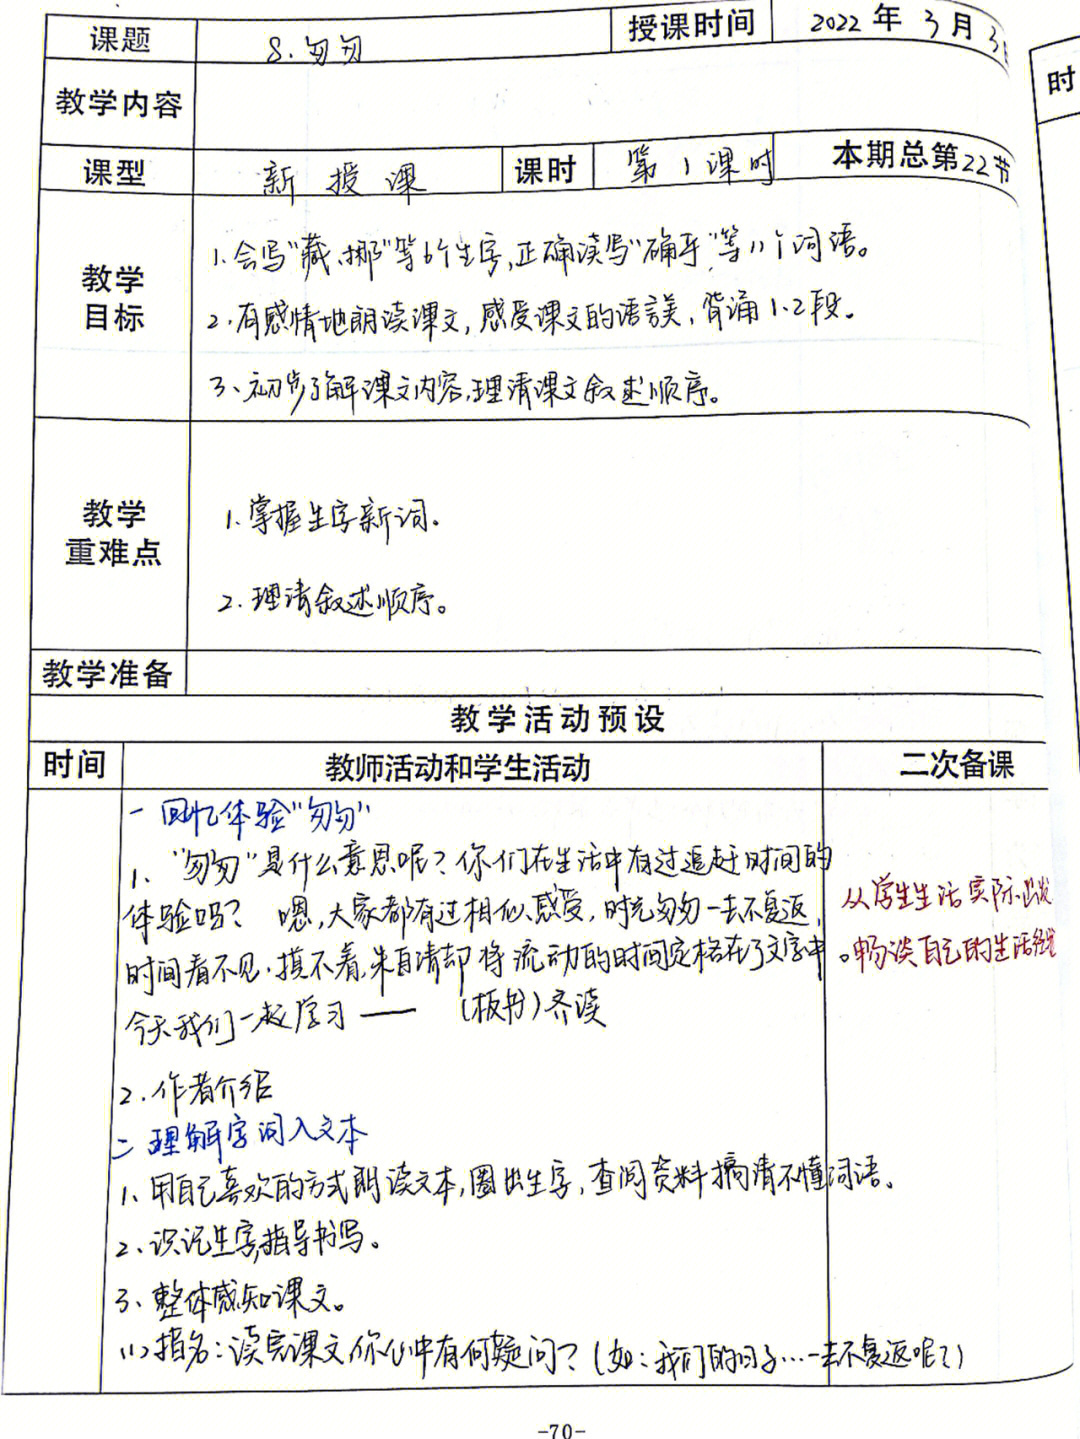 课题 8.匆匆 授课时间 2022年3月3
时
教学内容
课型 新授课 课时 第1课时 本期总第22节
教学目标
1.会写“藏、挪”等6个生字,正确读写“确乎”等11个词语。
2.有感情地朗读课文,感受课文的语言美,背诵1.2段。
3、初步了解课文内容,理清课文叙述顺序。
教学重难点
1.掌握生字新词。
2.理清叙述顺序。
教学准备
教学活动预设
时间 教师活动和学生活动 二次备课
一 回忆体验“匆匆”
1、“匆匆”是什么意思呢?你们在生活中有过追赶时间的
体验吗? 嗯,大家都有过相似感受,时光匆匆一去不复返,
时间看不见,摸不着,朱自清却将流动的时间定格在了文字中
今天我们一起学习——(板书)齐读
从学生生活实际出发
。畅谈自己的生活经验
2.作者介绍
二 理解字词入文本
1、用自己喜欢的方式朗读文本,圈出生字,查阅资料搞清不懂词语。
2、识记生字,指导书写。
3、整体感知课文。
(1)指名:读完课文,你心中有何疑问?(如:我们的日子…一去不复返呢?)
-70-